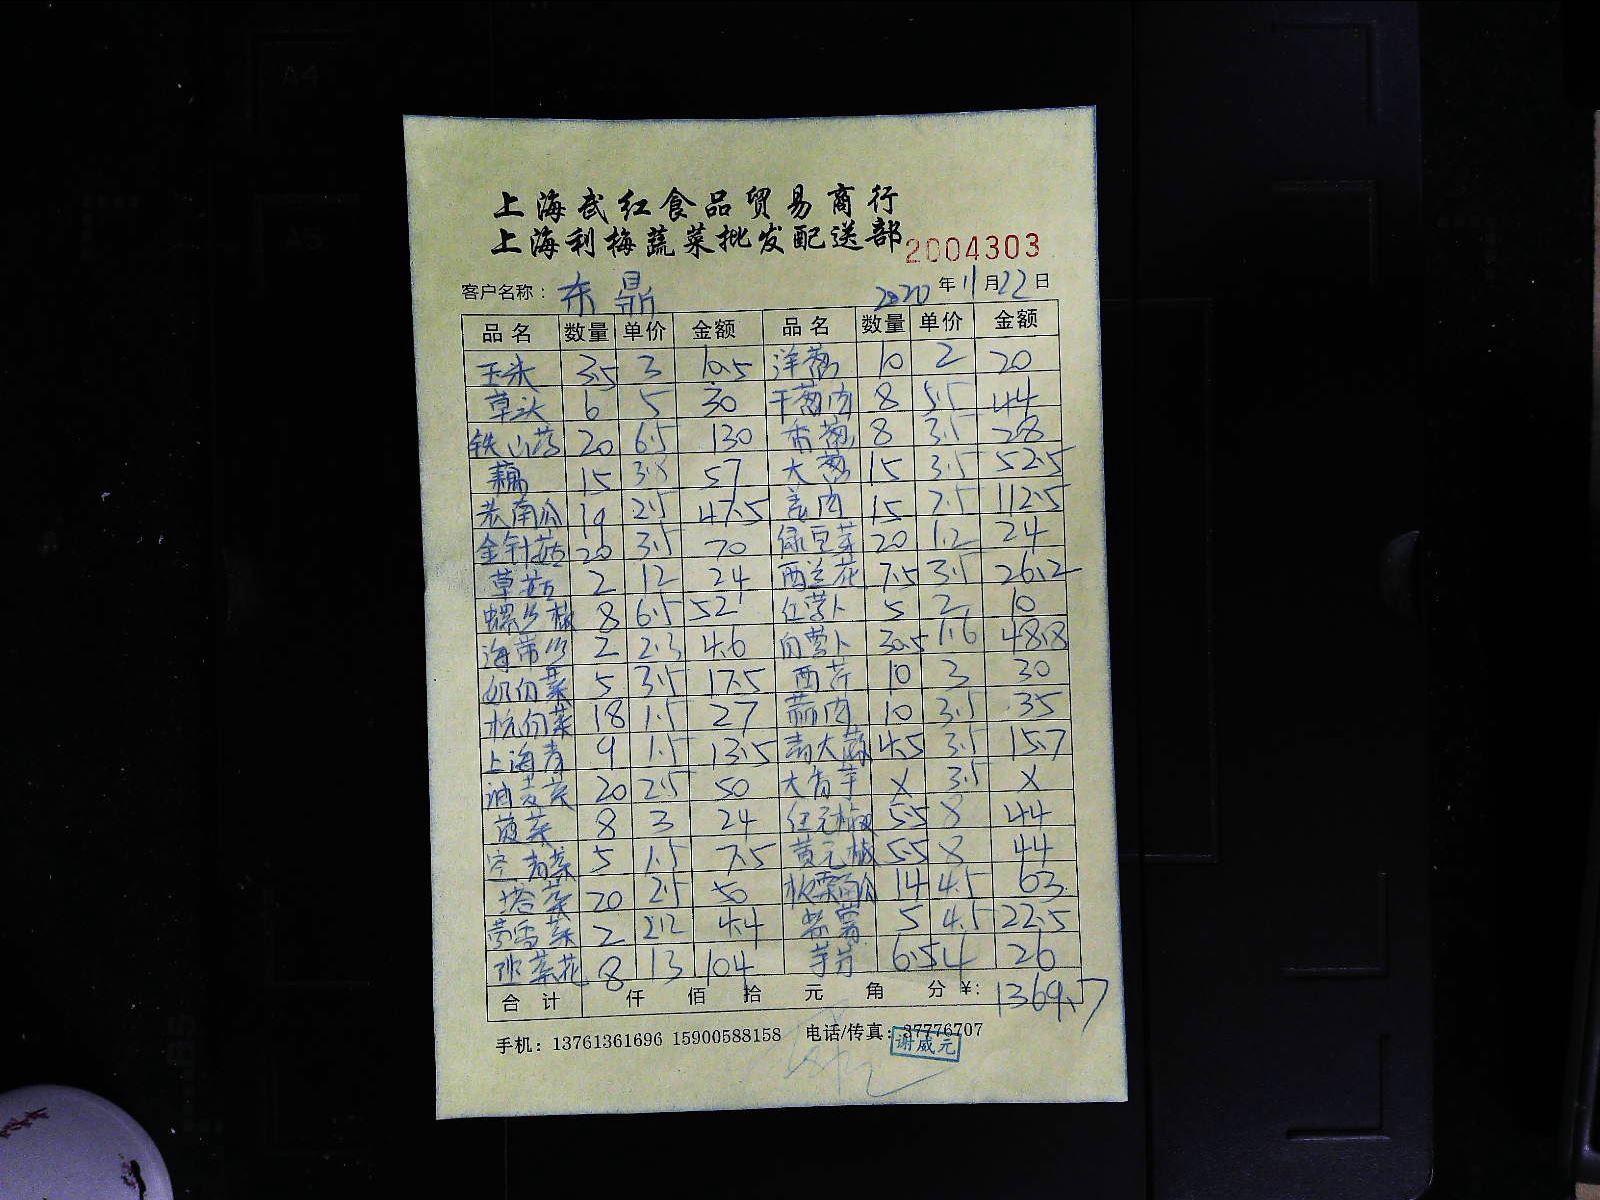 上海武红食品贸易商行
上海利梅蔬菜批发配送部 2004303
客户名称: 东鼎 2020年11月22日
品名 数量 单价 金额 品名 数量 单价 金额
玉米 3.5 3 10.5 洋葱 10 2 20
草头 6 5 30 干葱肉 8 5.5 44
铁山药 20 6.5 130 香葱 8 3.5 28
藕 15 3.8 57 大葱 15 3.5 52.5
老南瓜 19 2.5 47.5 姜肉 15 7.5 112.5
金针菇 20 3.5 70 绿豆芽 20 1.2 24
草菇 2 12 24 西兰花 7.5 3.5 26.2
螺丝椒 8 6.5 52 红萝卜 5 2 10
海带丝 2 2.3 4.6 白萝卜 30.5 1.6 48.8
奶白菜 5 3.5 17.5 西芹 10 3 30
杭白菜 18 1.5 27 蒜肉 10 3.5 35
上海青 9 1.5 13.5 青大蒜 4.5 3.5 15.7
油麦菜 20 2.5 50 大青芋 X 3.5 X
菠菜 8 3 24 红元椒 5.5 8 44
5 1.5 7.5 黄元椒 5.5 8 44
塔菜 20 2.5 50 板栗南瓜 14 4.5 63
雪菜 2 2.2 4.4 紫薯 5 4.5 22.5
菜花 8 13 104 芋艿 6.5 4 26
合计 仟 佰 拾 元 角 分 ¥: 1369.7
手机: 13761361696 15900588158 电话/传真: 37776707
谢威元